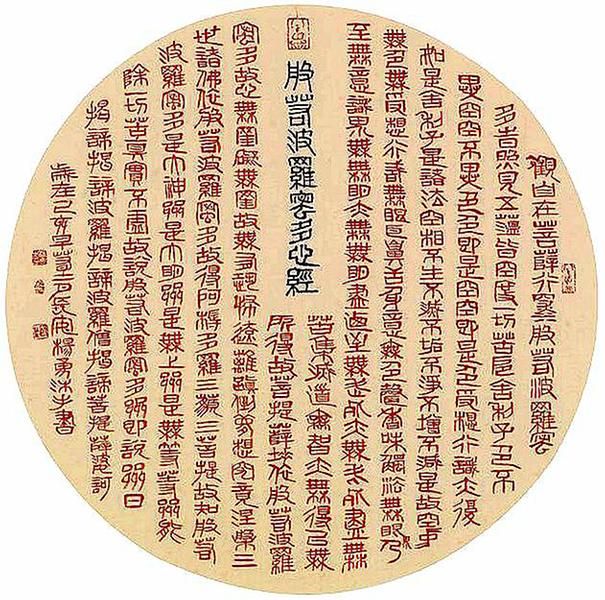 觀自在菩薩行深般若波羅蜜
多時照見五蘊皆空度一切苦厄舍利子色不
異空空不異色色即是空空即是色受想行識亦復
如是舍利子是諸法空相不生不滅不垢不淨不增不減是故空中
無色無受想行識無眼耳鼻舌身意無色聲香味觸法無眼界乃
至無意識界無無明亦無無明盡乃至無老死亦無老死盡無
般若波羅蜜多心經
苦集滅道無智亦無得以無
所得故菩提薩埵依般若波羅
蜜多故心無罣礙無罣故無有恐怖遠離顛倒夢想究竟涅槃三
世諸佛依般若波羅蜜多故得阿耨多羅三藐三菩提故知般若
波羅蜜多是大神咒是大明咒是無上咒是無等等咒能
除一切苦真實不虛故說般若波羅蜜多咒即說咒曰
揭諦揭諦波羅揭諦波羅僧揭諦菩提薩婆訶
歲在己亥年月長安楊勇沐手書